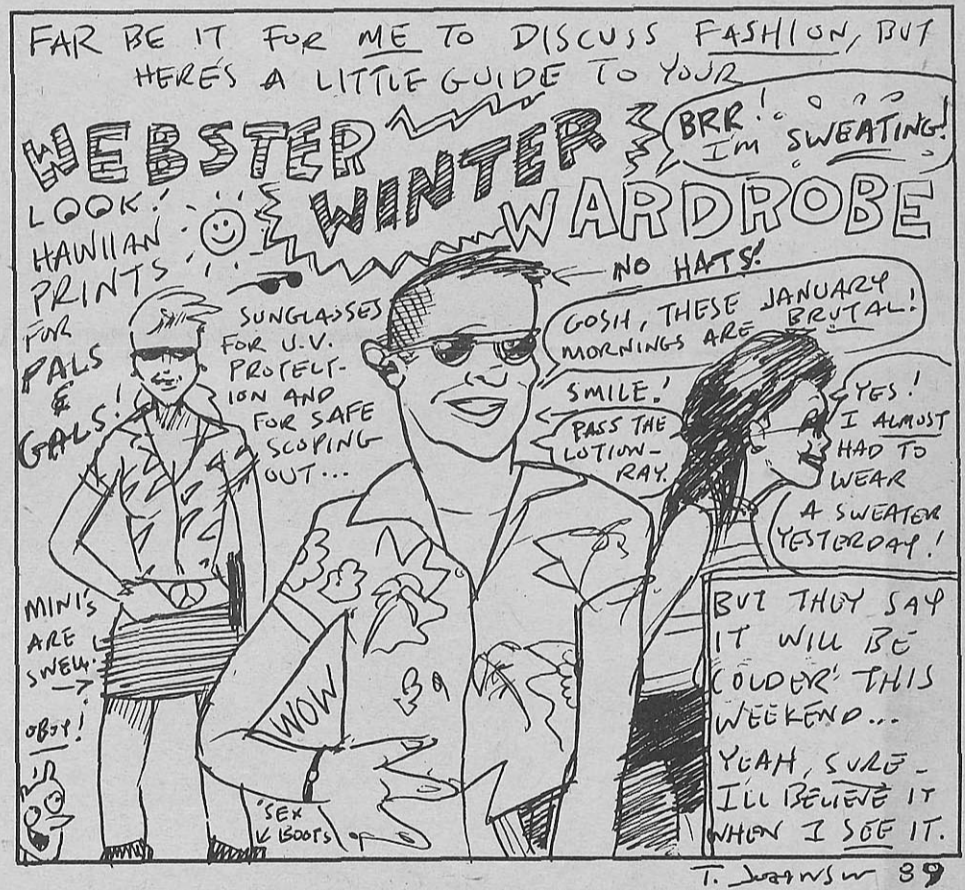 FAR BE IT FOR ME TO DISCUSS FASHION, BUT
HERE'S A LITTLE GUIDE TO YOUR
WEBSTER
WINTER
WARDROBE
BRR!
I'M SWEATING!
LOOK!
HAWIIAN
PRINTS
FOR
PALS
&
GALS!
SUNGLASSES
FOR U.V.
PROTECT-
ION AND
FOR SAFE
SCOPING
OUT...
NO HATS!
GOSH, THESE JANUARY
MORNINGS ARE BRUTAL!
SMILE!
PASS THE
LOTION-
RAY.
YES!
I ALMOST
HAD TO
WEAR
A SWEATER
YESTERDAY!
MINI'S
ARE
SWELL.
OBOY!
WOW
"SEX
BOOTS
BUT THEY SAY
IT WILL BE
COLDER THIS
WEEKEND...
YEAH, SURE-
I'LL BELIEVE IT
WHEN I SEE IT.
T.
89